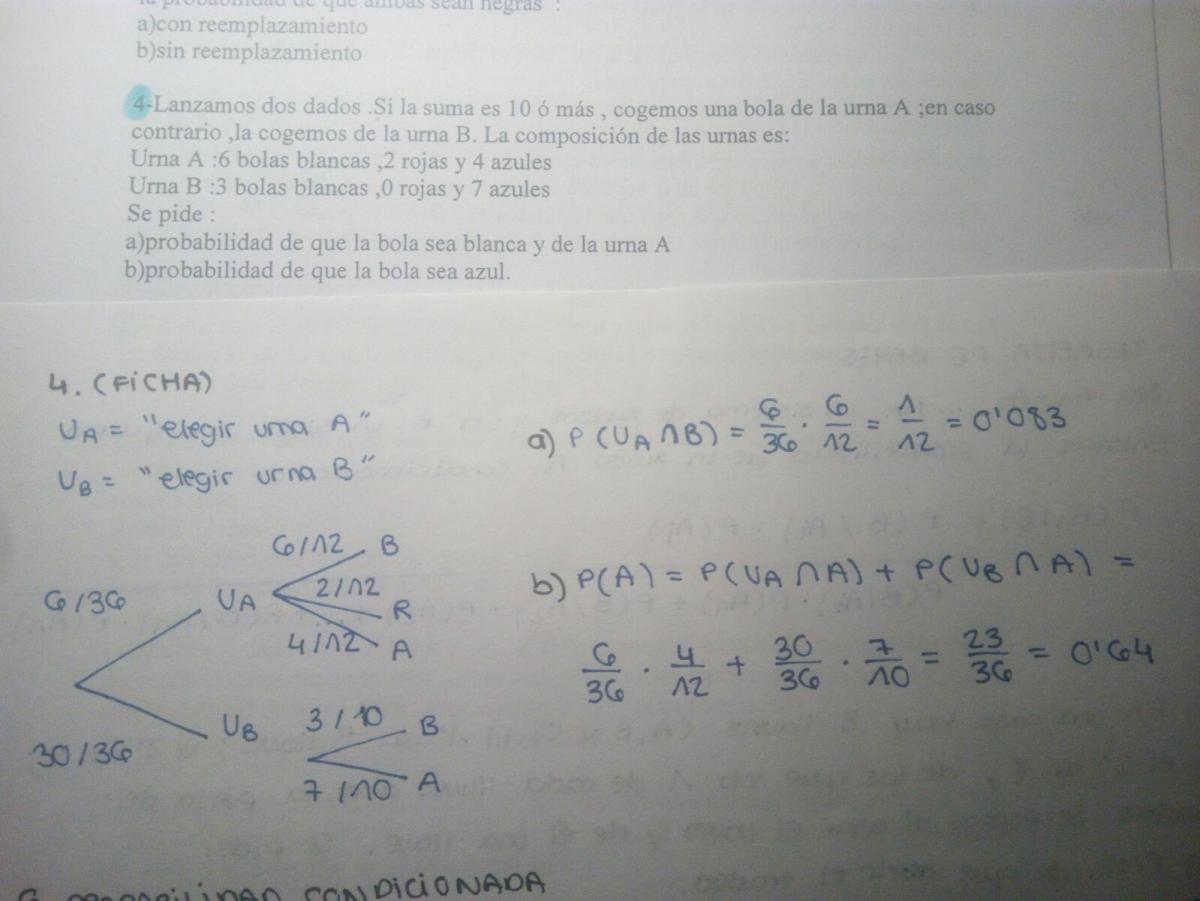 la probabilidad de que ambas sean negras :
a)con reemplazamiento
b)sin reemplazamiento
4-Lanzamos dos dados .Si la suma es 10 ó más , cogemos una bola de la urna A ;en caso
contrario ,la cogemos de la urna B. La composición de las urnas es:
Urna A :6 bolas blancas ,2 rojas y 4 azules
Urna B :3 bolas blancas ,0 rojas y 7 azules
Se pide :
a)probabilidad de que la bola sea blanca y de la urna A
b)probabilidad de que la bola sea azul.
4. (FiCHA)
UA = "elegir urna A"
UB = "elegir urna B"
a) P(UA∩B) = 6/36 · 6/12 = 1/12 = 0'083
6/36
UA
6/12 B
2/12 R
4/12 A
30/36
UB
3/10 B
7/10 A
b) P(A) = P(UA∩A) + P(UB∩A) =
6/36 · 4/12 + 30/36 · 7/10 = 23/36 = 0'64
CONDICIONADA